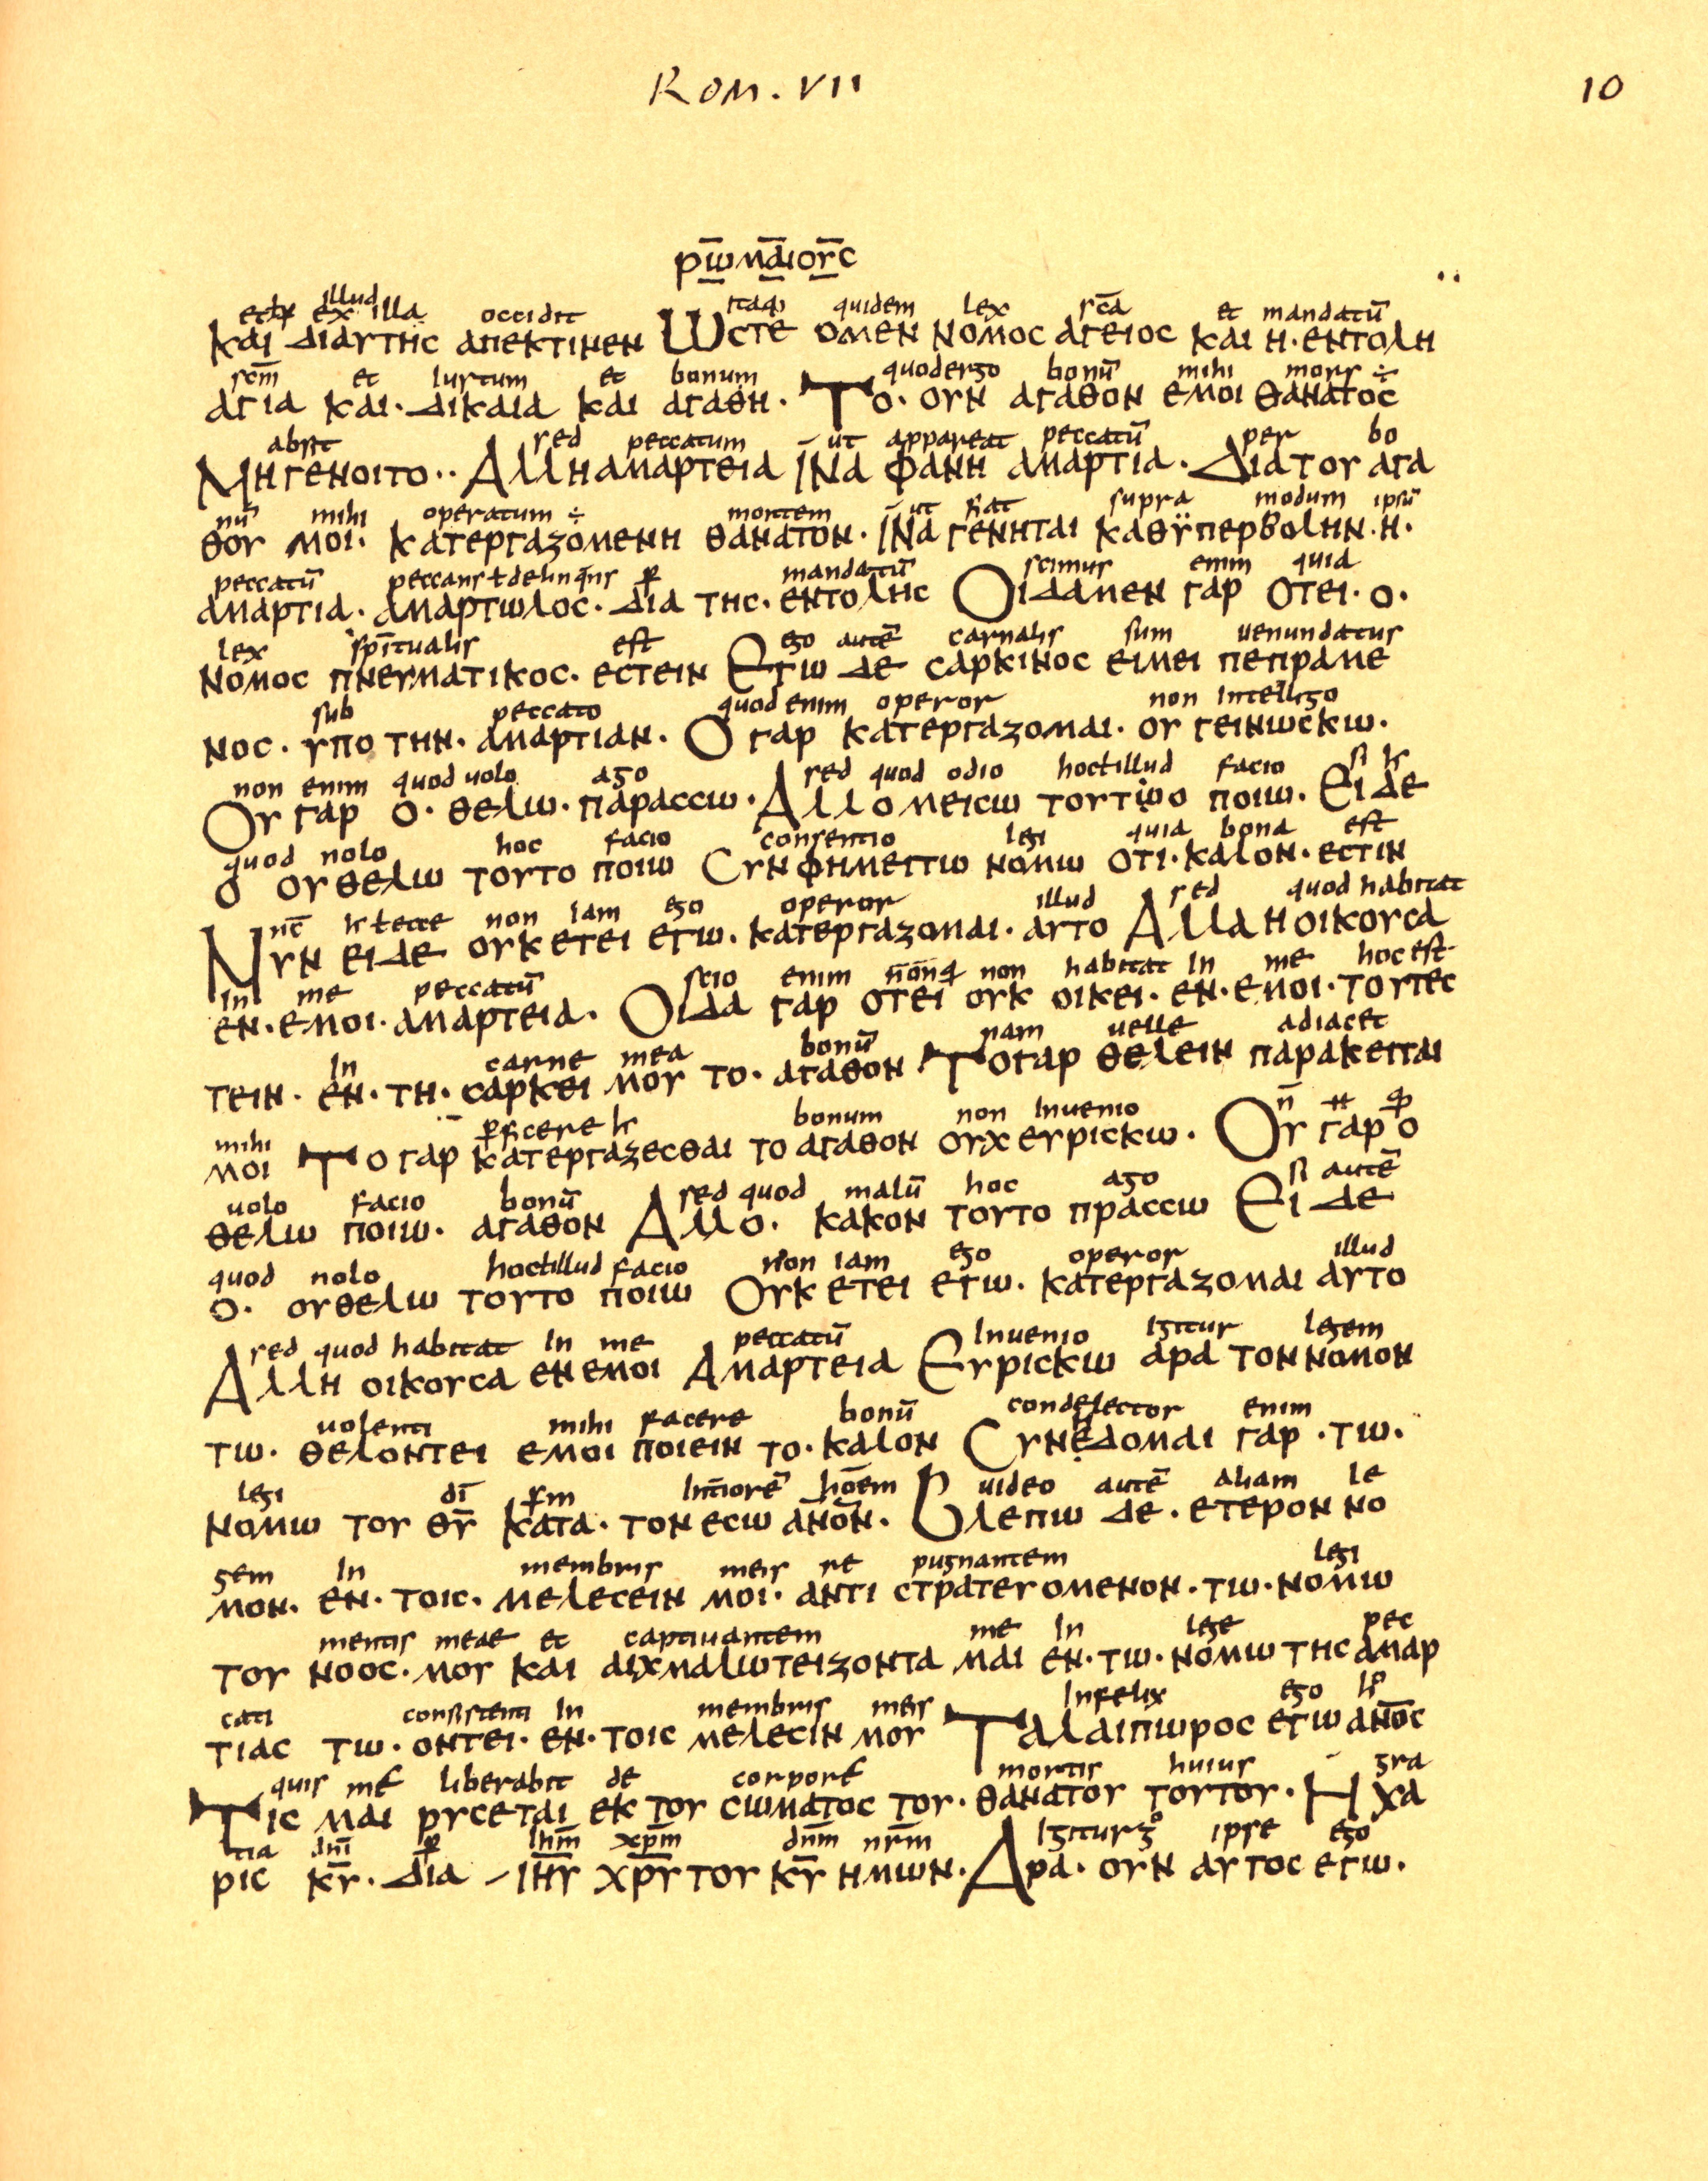 Rom. VII
10
ρωμαιουϲ
et ex illud illa occidit itaq; quidem lex sc̄a et mandatū
και διαυτηϲ απεκτινεν Ωϲτε ομεν νομοϲ αγειοϲ και η· εντολη
scm̄ et iustum et bonum quodergo bonū mihi mors ÷
αγια και· δικαια και αγαθη· Το· ουν αγαθον εμοι θανατοϲ
absit sed peccatum ut appareat peccatū per bo
Μηγενοιτο·· Αλληαμαρτεια Ινα φανη αμαρτια· Διατου αγα
nū mihi operatum ÷ mortem ut fiat supra modum ipsū
θου μοι· κατεργαζομενη θανατον· Ινα γενηται καθϋπερβολην· η·
peccatū peccans ł delinq̄ns ꝑ mandatū scimus enim quia
αμαρτια· αμαρτωλοϲ· δια τηϲ· εντοληϲ Οιδαμεν γαρ οτει· ο·
lex spīritualis est ego autē carnalis sum uenundatus
νομοϲ πνευματικοϲ· εϲτειν Εγω δε ϲαρκινοϲ ειμει πεπραμε
sub peccato quod enim operor non intellego
νοϲ· υπο την· αμαρτιαν· Ο γαρ κατεργαζομαι· ου γεινωϲκω·
non enim quod uolo ago sed quod odio hoc ł illud facio si
Ου γαρ ο· θελω· παραϲϲω· Αλλομειϲω τουτωο ποιω· Ει δε
quod nolo hoc facio consentio legi quia bona est
ο ουθελω τουτο ποιω Ϲυνφημειτω νομω οτι· καλον· εϲτιν
nc̄ ł ecce non iam ego operor illud sed quod habitat
Νυν ειδε ουκετει εγω· κατεργαζομαι· αυτο Αλλαηοικουϲα
in me peccatū scio enim non habitat in me hoc est
εν· εμοι· αμαρτεια· Οιδα γαρ οτει ουκ οικει· εν· εμοι· τουτεϲ
in carne mea bonū nam uelle adiacet
τειν· εν· τη· ϲαρκει μου το· αγαθον Τογαρ θελειν παρακειται
mihi ꝑficere bonum non inuenio n̄
μοι Το γαρ κατεργαζεϲθαι το αγαθον ουχευριϲκω· Ου γαρ ο
uolo facio bonū sed quod malū hoc ago si autē
θελω ποιω· αγαθον Αλλο· κακον τουτο πραϲϲω Ει δε
quod nolo hoc ł illud facio non iam ego operor illud
ο· ουθελω τουτο ποιω Ουκετει εγω· κατεργαζομαι αυτο
sed quod habitat in me peccatū Inuenio igitur legem
Αλλη οικουϲα ενεμοι Αμαρτεια Ευριϲκω αρα τοννομον
uolenti mihi facere bonū condelector enim
τω· θελοντει εμοι ποιειν το· καλον Ϲυνεδομαι γαρ· τω·
legi dī intiorē hoēm uideo autē aliam le
νομω του θ̄υ κατα· τονεϲω ᾱν̄ο̄ν· Βλεπω δε· ετερον νο
gem in membris meis re pugnantem legi
μον· εν· τοιϲ· μελεϲειν μοι· αντι ϲτρατευομενον· τω· νομω
mentis meae et captiuantem me in lege pec
του νοοϲ· μου και αιχμαλωτειζοντα μαι εν· τω· νομω τηϲ αμαρ
cati consistenti in membris meis Infelix ego
τιαϲ τω· οντει· εν· τοιϲ μελεϲιν μου Ταλαιπωροϲ εγω ᾱν̄ο̄ϲ
quis me liberabit de corpore mortis huius gra
Τιϲ μαι ρυϲεται εκ του ϲωματοϲ του· θανατου τουτου· Η χα
tia dnī ꝑ ihm̄ xpm̄ dnm̄ nrm̄ Igitur gͦ ipse ego
ριϲ κ̄υ· δια Ιη̄υ χρ̄υ του κ̄υ ημων· Αρα· ουν αυτοϲ εγω·